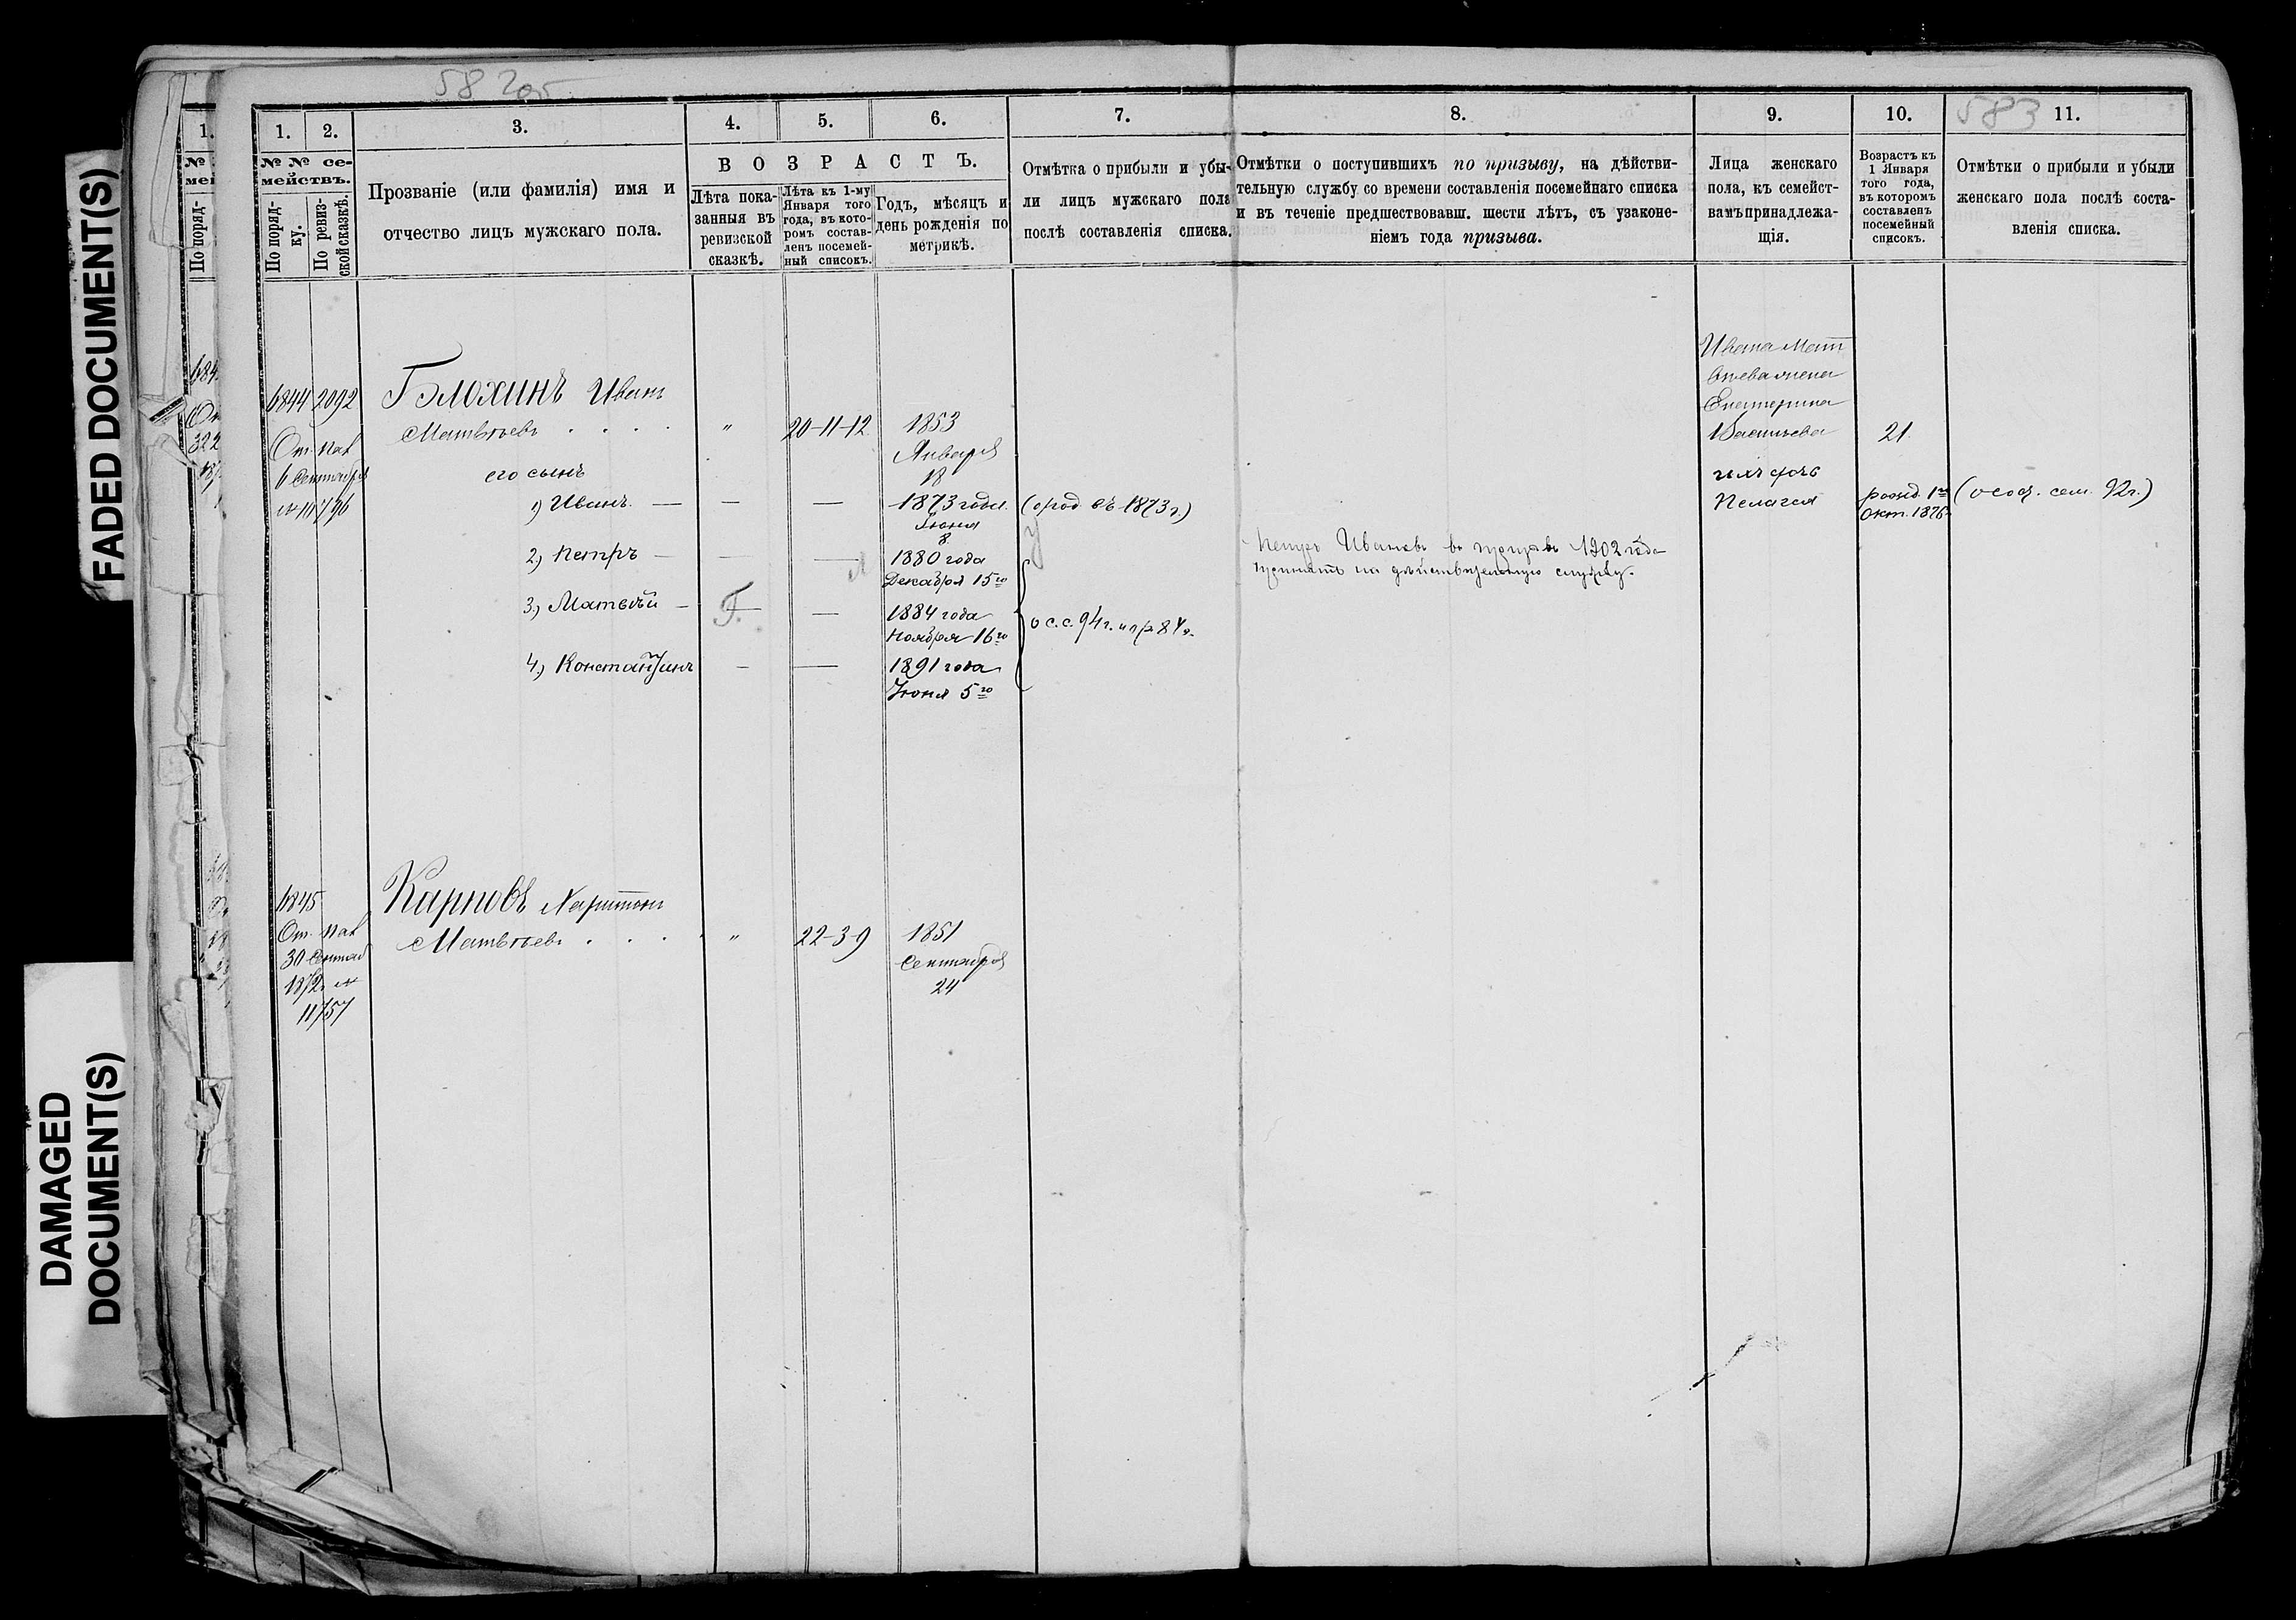 FADED DOCUMENT(S)
DAMAGED
DOCUMENT(S)
58 2об
583
1. 2. 3. 4. 5. 6. 7. 8. 9. 10. 11.
№ № се-
мействъ.
По поряд-
ку.
По ревиз-
ской сказкѣ.
Прозваніе (или фамилія) имя и
отчество лицъ мужскаго пола.
ВОЗРАСТЪ.
Лѣта пока-
занныя въ
ревизской
сказкѣ.
Лѣта къ 1-му
Января того
года, въ кото-
ромъ состав-
ленъ посемей-
ный списокъ.
Годъ, мѣсяцъ и
день рожденія по
метрикѣ.
Отмѣтка о прибыли и убы-
ли лицъ мужскаго пола
послѣ составленія списка.
Отмѣтки о поступившихъ по призыву, на дѣйстви-
тельную службу со времени составленія посемейнаго списка
и въ теченіе предшествовавш. шести лѣтъ, съ узаконе-
ніемъ года призыва.
Лица женскаго
пола, къ семейст-
вамъ принадлежа-
щія.
Возрастъ къ
1 Января
того года,
въ которомъ
составленъ
посемейный
списокъ.
Отмѣтки о прибыли и убыли
женскаго пола послѣ соста-
вленія списка.
6844 2092
От. Пав
6 Сентября
Блохинъ Иванъ
Матвѣевъ . . . . " 20-11-12 1853
Января
18
его сынъ
1) Иванъ. — — — 1873 года. (о род. въ 1873 г.)
Іюня
8.
2) Петръ — — — 1880 года
Декабря 15го
3) Матвѣй — — — 1884 года
Ноября 16го
4) Константинъ — — 1891 года
Іюня 5го
о с. с. 94 г. и пр 84 г.
Петръ Ивановъ въ призывъ 1902 года
принятъ на дѣйствительную службу.
Ивана Мат
вѣева жена
Екатерина
Васильева 21.
ихъ дочь
Пелагея рожд. 1го
окт. 1876 (о сос. сем. 92 г.)
6845
От. Пав
30 Сентяб
1872 №
11757
Карповъ Харитонъ
Матвѣевъ . . . . " 22-3-9 1851
Сентября
24